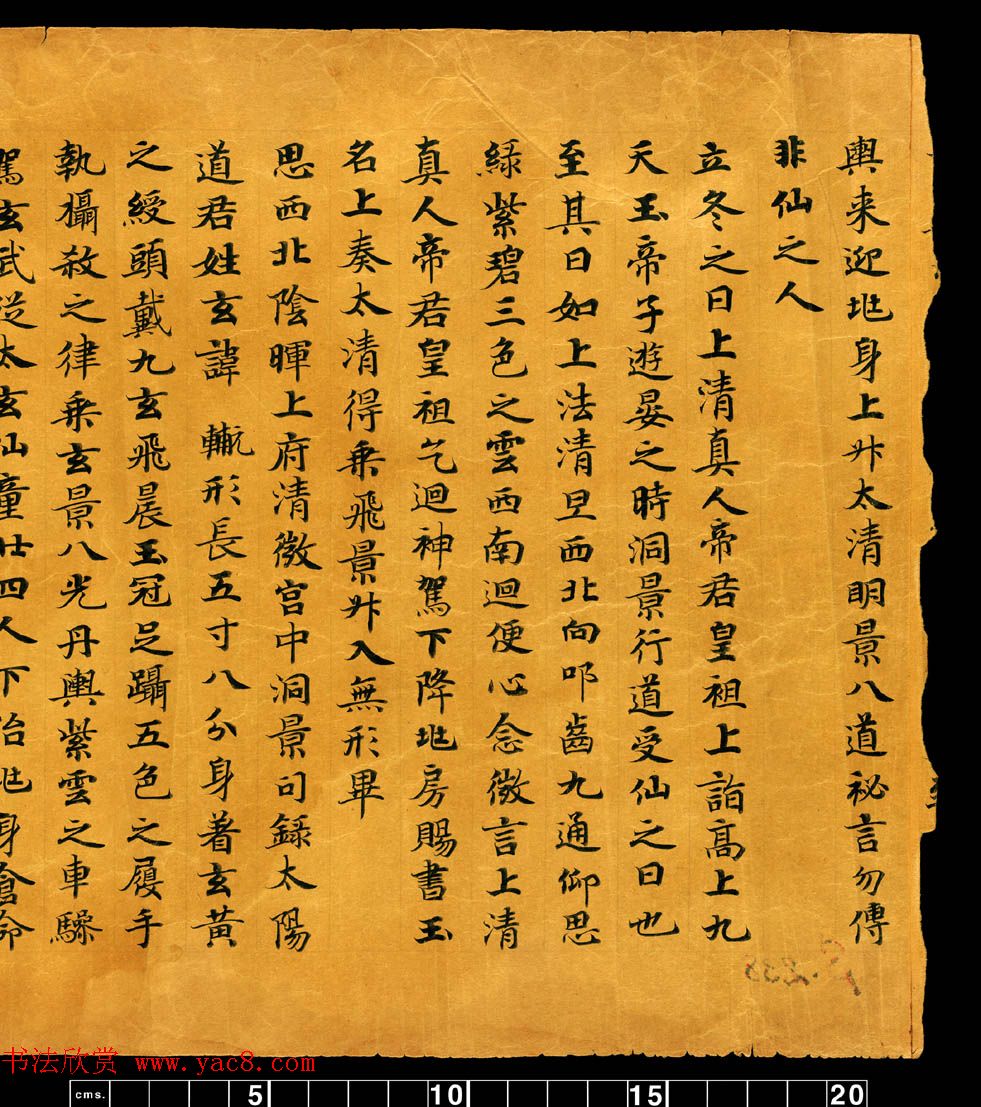 輿来迎兆身上升太清明景八道祕言勿傳
非仙之人
立冬之日上清真人帝君皇祖上詣高上九
天玉帝子遊晏之時洞景行道受仙之日也
至其日如上法清旦西北向叩齒九通仰思
緑紫碧三色之雲西南迴便心念微言上清
真人帝君皇祖乞迴神駕下降兆房賜書玉
名上奏太清得乗飛景升入無形畢
思西北陰暉上府清微宫中洞景司録太陽
道君姓玄諱 形長五寸八分身著玄黄
之綬頭戴九玄飛晨玉冠足躡五色之履手
執攝殺之律乗玄景八光丹輿紫雲之車驂
駕玄武從太玄仙童廿四人下治兆身倉命
书法欣赏 www.yac8.com
cms. 5 10 15 20